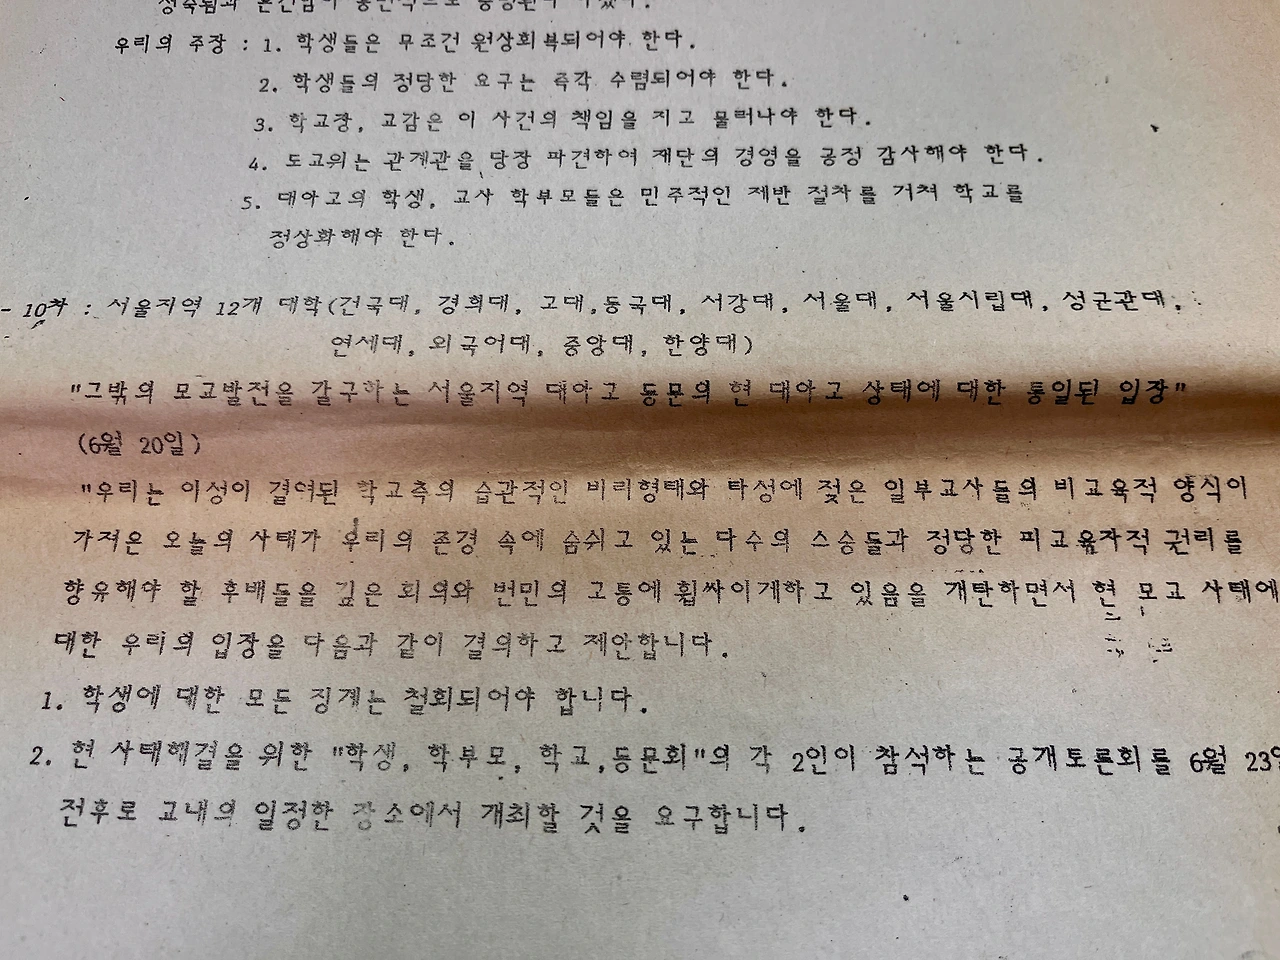 우리의 주장 : 1. 학생들은 무조건 원상회복되어야 한다.
2. 학생들의 정당한 요구는 즉각 수렴되어야 한다.
3. 학교장, 교감은 이 사건의 책임을 지고 물러나야 한다.
4. 도교위는 관계관을 당장 파견하여 재단의 경영을 공정 감사해야 한다.
5. 대아고의 학생, 교사 학부모들은 민주적인 제반 절차를 거쳐 학교를
정상화해야 한다.
- 10차 : 서울지역 12개 대학(건국대, 경희대, 고대,동국대, 서강대, 서울대, 서울시립대, 성균관대,
연세대, 외국어대, 중앙대, 한양대)
"그밖의 모교발전을 갈구하는 서울지역 대아고 동문의 현 대아고 상태에 대한 통일된 입장"
(6월 20일)
"우리는 이성이 결여된 학교측의 습관적인 비리형태와 타성에 젖은 일부교사들의 비교육적 양식이
가져온 오늘의 사태가 우리의 존경 속에 숨쉬고 있는 다수의 스승들과 정당한 피교육자적 권리를
향유해야 할 후배들을 깊은 회의와 번민의 고통에 휩싸이게하고 있음을 개탄하면서 현 모교 사태에
대한 우리의 입장을 다음과 같이 결의하고 제안합니다.
1. 학생에 대한 모든 징계는 철회되어야 합니다.
2. 현 사태해결을 위한 "학생, 학부모, 학교,동문회"의 각 2인이 참석하는 공개토론회를 6월 23일
전후로 교내의 일정한 장소에서 개최할 것을 요구합니다.